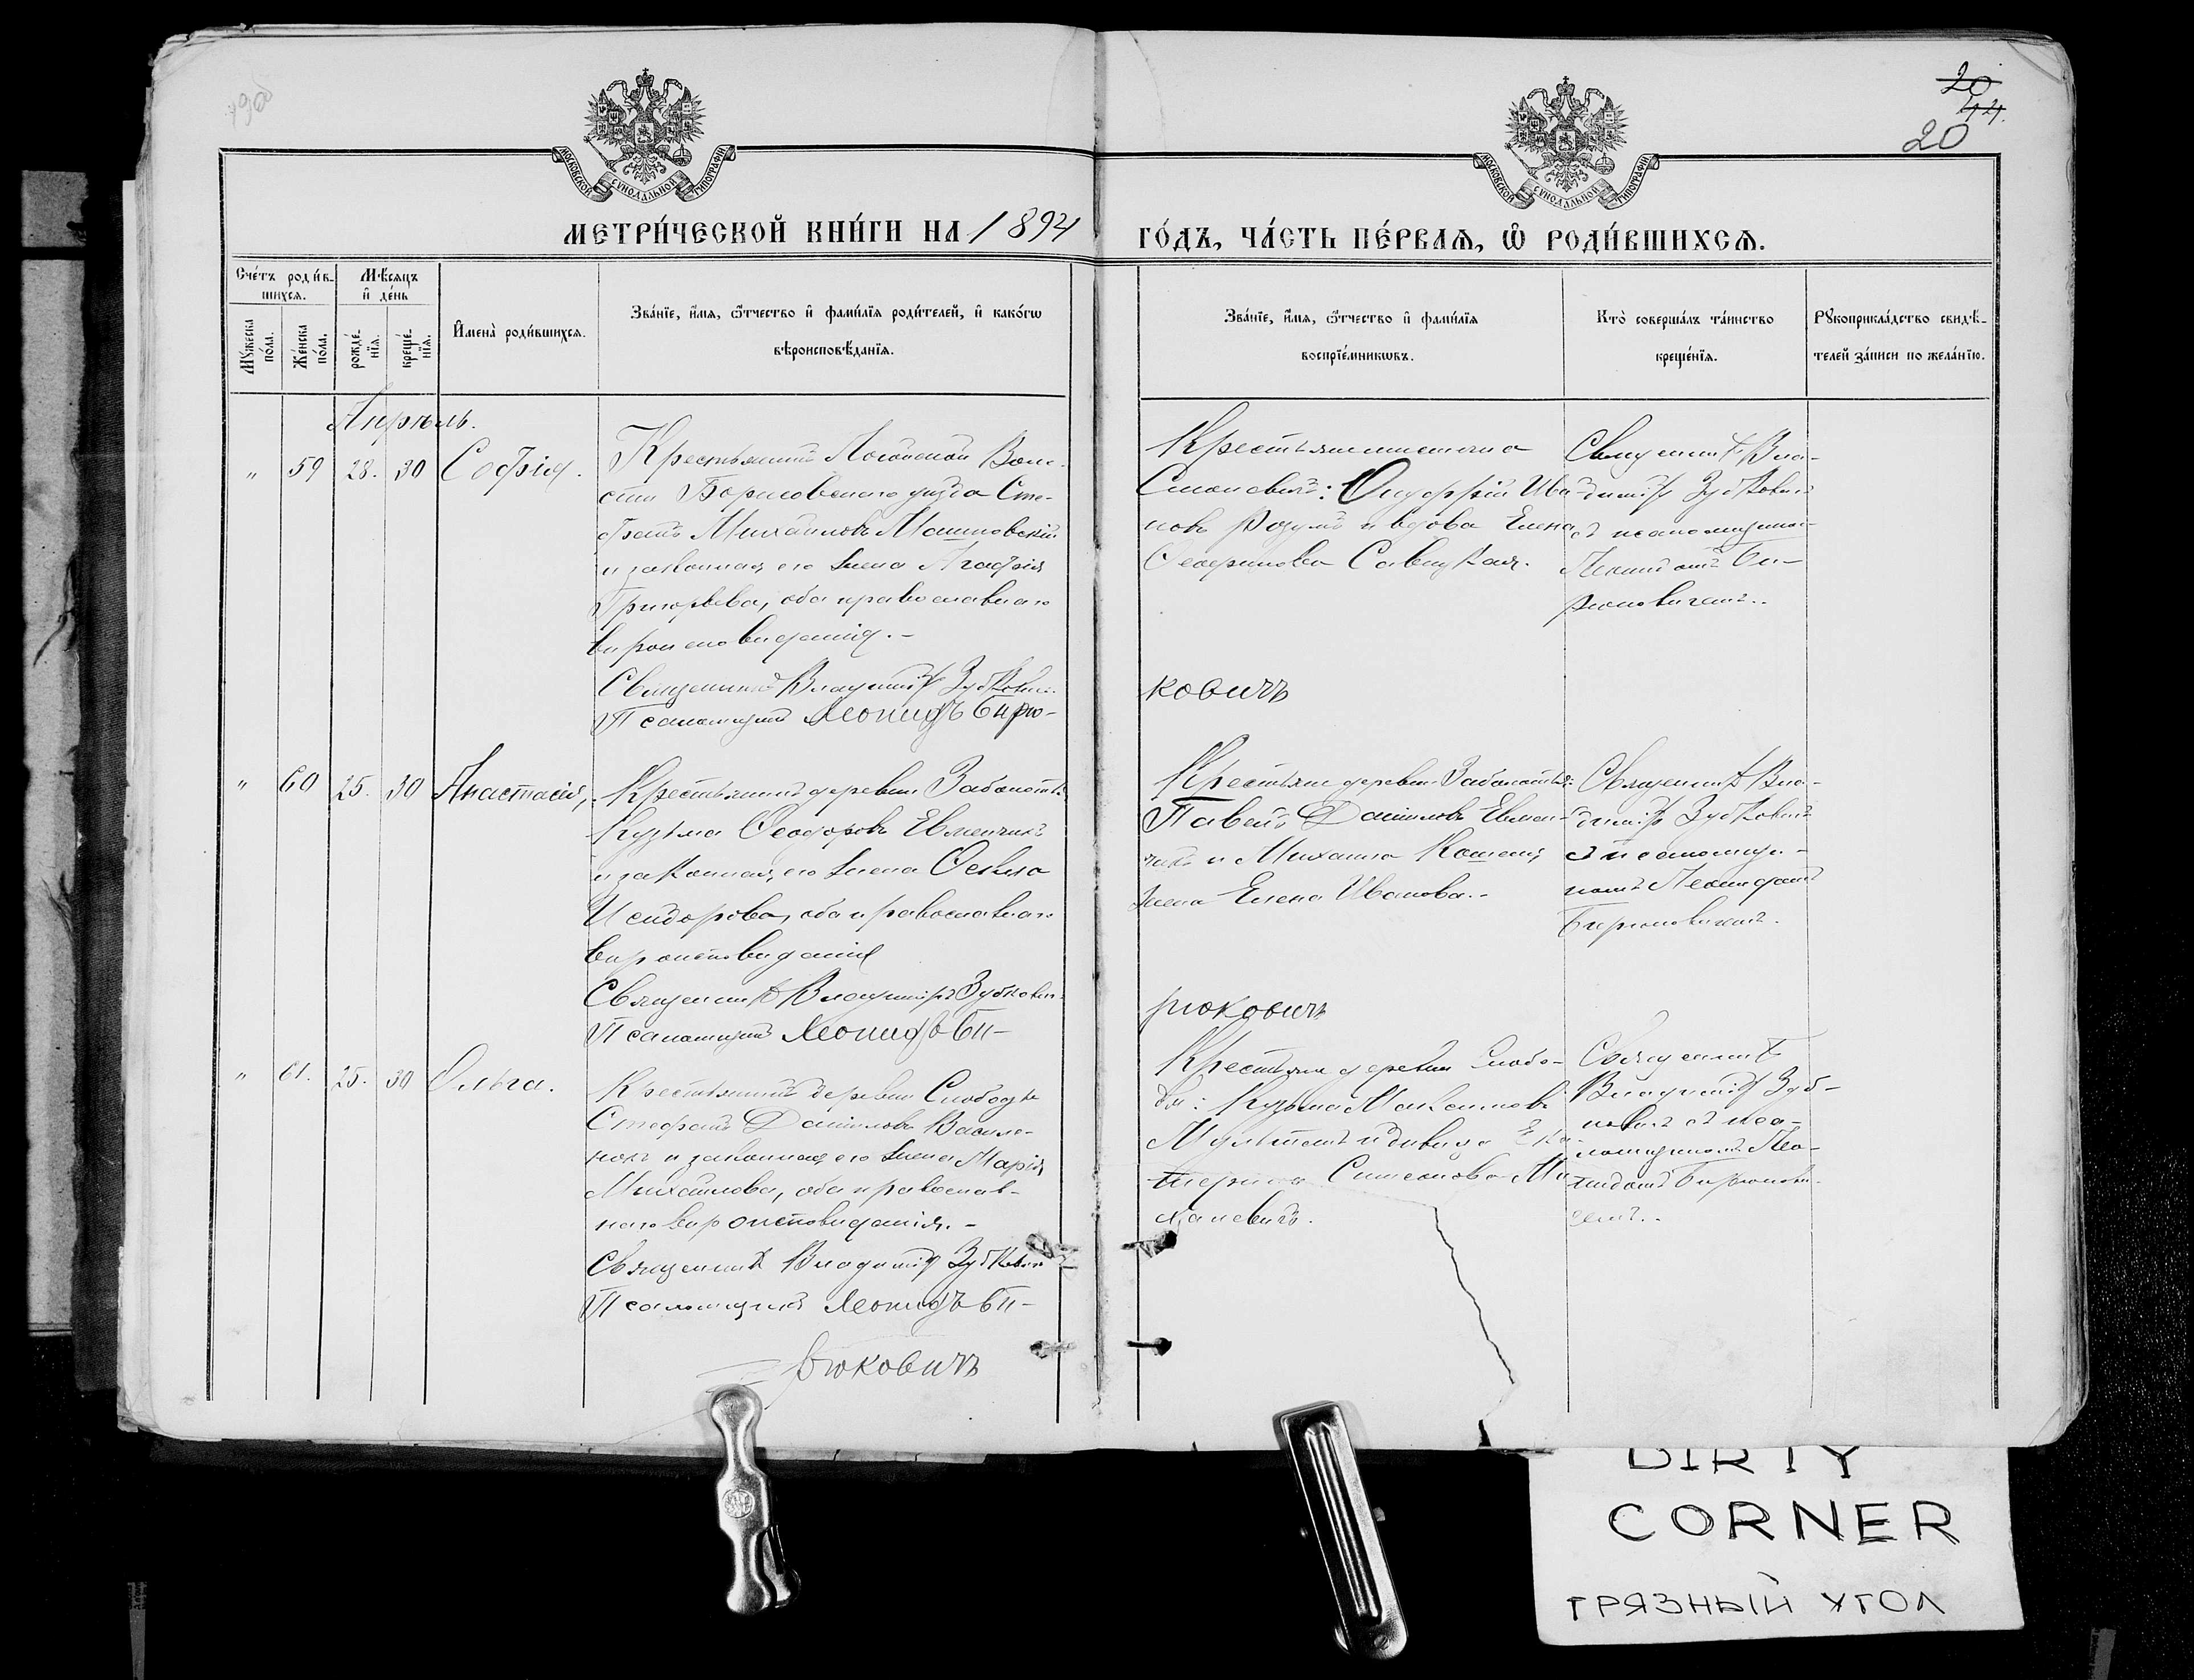 20
44.
20
МОСКОВСКОЙ СѴНОДАЛЬНОЙ ТИПОГРАФІИ
МОСКОВСКОЙ СѴНОДАЛЬНОЙ ТИПОГРАФІИ
МЕТРИ́ЧЕСКОЙ КНИ́ГИ НА 1894
ГО́ДЪ, ЧА́СТЬ ПЕ́РВАѦ, Ѡ҆ РОДИ́ВШИХСѦ.
Сче́тъ роди́в-
шихсѧ.
Мѣ́сѧцъ
и҆ де́нь
Мꙋ́жеска
по́ла.
Же́нска
по́ла.
рожде́-
нїѧ.
креще́-
нїѧ.
И҆мена̀ роди́вшихсѧ.
Зва́нїе, и҆́мѧ, ѻ҆́тчество и҆ фами́лїѧ роди́телей, и҆ како́гѡ
вѣроисповѣ́данїѧ.
Зва́нїе, и҆́мѧ, ѻ҆́тчество и҆ фами́лїѧ
воспрїе́мникѡвъ.
Кто̀ соверша́лъ та́инство
креще́нїѧ.
Рꙋкоприкла́дство свидѣ́-
телей за́писи по жела́нїю.
Апрѣль.
" 59 28. 30 Софія.
Крестьянинъ Логойской Воло-
сти Борисовскаго уѣзда Сте-
фанъ Михаиловъ
и законная его жена Агафія
Григорьева, оба православнаго
вѣроисповѣданія.-
Священникъ Владиміръ Зубкович
Псаломщикъ Леонидъ Бирю-
Крестьяне мѣстечка
Ива-
новъ и вдова Елена
Савицкая.
Священник Вла-
диміръ Зубкович
съ псаломщиком
Леонидомъ Би-
рюковичемъ..
ковичъ
" 60 25. 30 Анастасія,
Крестьянинъ деревни Заболотья
Кузьма Ѳеодоровъ Евменчикъ
и законная его жена Ѳекла
Исидорова, оба православнаго
вѣроисповѣданія
Священник Владиміръ Зубкович
Псаломщикъ Леонидъ Би-
Крестьяне деревни Заболотья:
Павелъ Даніиловъ Евмен-
чикъ и Михаила
жена Елена Иванова.-
Священник Вла-
диміръ Зубковичъ
съ псаломщи-
комъ Леонидомъ
Бирюковичемъ.
рюковичъ
" 61. 25. 30 Ольга.
Крестьянинъ деревни Слободы
Стефанъ Даніиловъ Василе-
нокъ и законная его жена Марія
Михаилова, оба православ-
наго вѣроисповѣданія.-
Священник Владиміръ Зубкович
Псаломщикъ Леонидъ Би-
рюковичъ
Крестьяне деревни Слобо-
ды: Кузьма Максимовъ
и дѣвица Ека-
терина Симеонова
Священник
Владиміръ Зуб-
ковичъ съ пса-
ломщикомъ Лео-
нидомъ Бирюкови-
чемъ..
DIRTY
CORNER
ГРЯЗНЫЙ УГОЛ